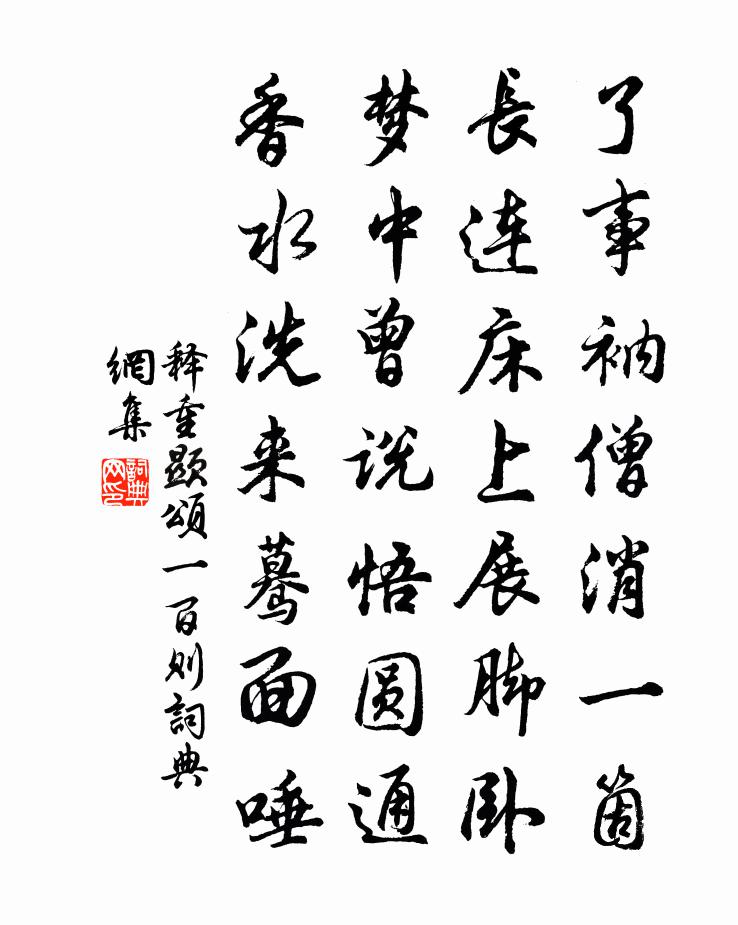 了事衲僧消一箇
長連床上展脚卧
梦中曾说悟圆通
香水洗来蓦面唾
释重顯頌一百则詞典
網集
詞典
网印